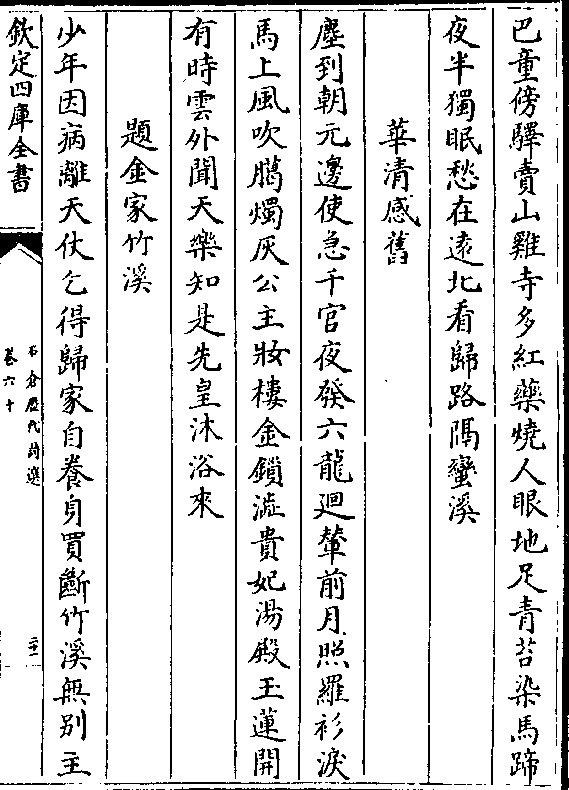 巴童傍驛賣山雞寺多紅藥燒人眼地足青苔染馬蹄
夜半獨眠愁在逺北看歸路隔蠻溪
華清感舊
塵到朝元邊使急千官夜發六龍廻輦前月照羅衫淚
馬上風吹臈燭灰公主妝樓金鎖澁貴妃湯殿玉蓮開
有時雲外聞天樂知是先皇沐浴來
題金家竹溪
少年因病離天仗乞得歸家自養身買斷竹溪無别主
欽定四庫全書
石倉歷代詩選
卷六十
二十一